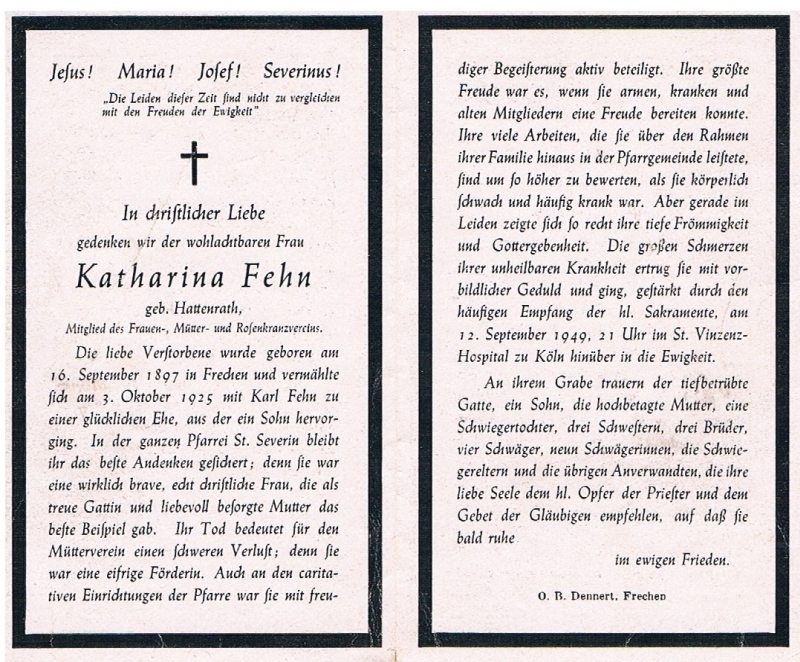 Jesus! Maria! Josef! Severinus!
„Die Leiden dieser Zeit sind nicht zu vergleichen
mit den Freuden der Ewigkeit"
In christlicher Liebe
gedenken wir der wohlachtbaren Frau
Katharina Fehn
geb. Hattenrath,
Mitglied des Frauen-, Mütter- und Rosenkranzvereins.
Die liebe Verstorbene wurde geboren am
16. September 1897 in Frechen und vermählte
sich am 3. Oktober 1925 mit Karl Fehn zu
einer glücklichen Ehe, aus der ein Sohn hervor-
ging. In der ganzen Pfarrei St. Severin bleibt
ihr das beste Andenken gesichert; denn sie war
eine wirklich brave, echt christliche Frau, die als
treue Gattin und liebevoll besorgte Mutter das
beste Beispiel gab. Ihr Tod bedeutet für den
Mütterverein einen schweren Verlust; denn sie
war eine eifrige Förderin. Auch an den carita-
tiven Einrichtungen der Pfarre war sie mit freu-
diger Begeisterung aktiv beteiligt. Ihre größte
Freude war es, wenn sie armen, kranken und
alten Mitgliedern eine Freude bereiten konnte.
Ihre viele Arbeiten, die sie über den Rahmen
ihrer Familie hinaus in der Pfarrgemeinde leistete,
sind um so höher zu bewerten, als sie körperlich
schwach und häufig krank war. Aber gerade im
Leiden zeigte sich so recht ihre tiefe Frömmigkeit
und Gottergebenheit. Die großen Schmerzen
ihrer unheilbaren Krankheit ertrug sie mit vor-
bildlicher Geduld und ging, gestärkt durch den
häufigen Empfang der hl. Sakramente, am
12. September 1949, 21 Uhr im St. Vinzenz-
Hospital zu Köln hinüber in die Ewigkeit.
An ihrem Grabe trauern der tiefbetrübte
Gatte, ein Sohn, die hochbetagte Mutter, eine
Schwiegertochter, drei Schwestern, drei Brüder,
vier Schwäger, neun Schwägerinnen, die Schwie-
gereltern und die übrigen Anverwandten, die ihre
liebe Seele dem hl. Opfer der Priester und dem
Gebet der Gläubigen empfehlen, auf daß sie
bald ruhe
im ewigen Frieden.
O. B. Dennert, Frechen